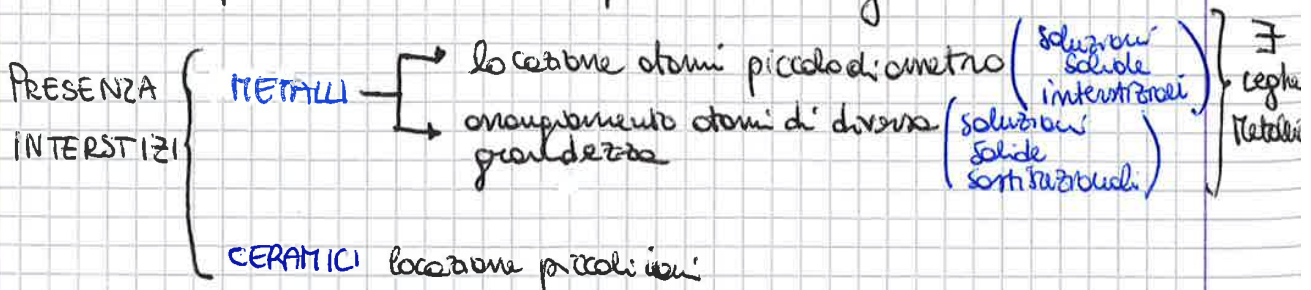 PRESENZA
INTERSTIZI
METALLI
locazione atomi piccolo diametro
(soluzioni
solide
interstiziali)
atomi di diversa
grandezza
(soluzioni
solide
sostituzionali)
∃
leghe
Metalliche
CERAMICI locazione piccoli ioni